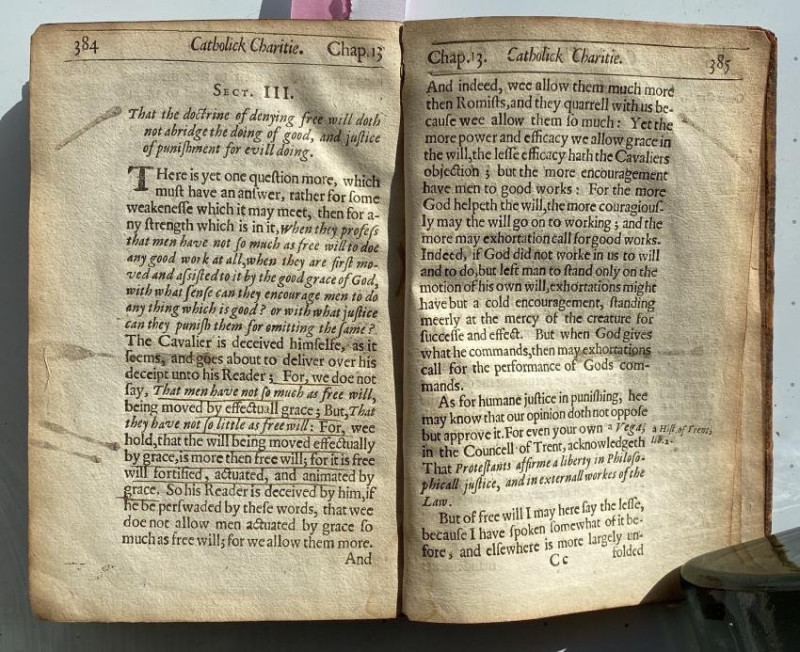 384 Catholick Charitie. Chap.13
SECT. III.
That the doctrine of denying free will doth
not abridge the doing of good, and justice
of punishment for evill doing.
THere is yet one question more, which
must have an answer, rather for some
weakenesse which it may meet, then for a-
ny strength which is in it, when they professe
that men have not so much as free will to doe
any good work at all, when they are first mo-
ved and assisted to it by the good grace of God,
with what sense can they encourage men to do
any thing which is good? or with what justice
can they punish them for omitting the same?
The Cavalier is deceived himselfe, as it
seems, and goes about to deliver over his
deceipt unto his Reader; For, we doe not
say, That men have not so much as free will,
being moved by effectuall grace; But, That
they have not so little as free will: For, wee
hold, that the will being moved effectually
by grace, is more then free will; for it is free
will fortified, actuated, and animated by
grace. So his Reader is deceived by him, if
he be perswaded by these words, that wee
doe not allow men actuated by grace so
much as free will; for we allow them more.
And
Chap.13. Catholick Charitie. 385
And indeed, wee allow them much more
then Romists, and they quarrell with us be-
cause wee allow them so much: Yet the
more power and efficacy we allow grace in
the will, the lesse efficacy hath the Cavaliers
objection; but the more encouragement
have men to good works: For the more
God helpeth the will, the more couragious-
ly may the will go on to working; and the
more may exhortation call for good works.
Indeed, if God did not worke in us to will
and to do, but left man to stand only on the
motion of his own will, exhortations might
have but a cold encouragement, standing
meerly at the mercy of the creature for
successe and effect. But when God gives
what he commands, then may exhortations
call for the performance of Gods com-
mands.
As for humane justice in punishing, hee
may know that our opinion doth not oppose
but approve it. For even your own a Vega,
in the Councell of Trent, acknowledgeth
That Protestants affirme a liberty in Philoso-
phicall justice, and in externall workes of the
Law.
a Hist. of Trent,
lib. 2.
But of free will I may here say the lesse,
because I have spoken somewhat of it be-
fore, and elsewhere is more largely un-
Cc folded